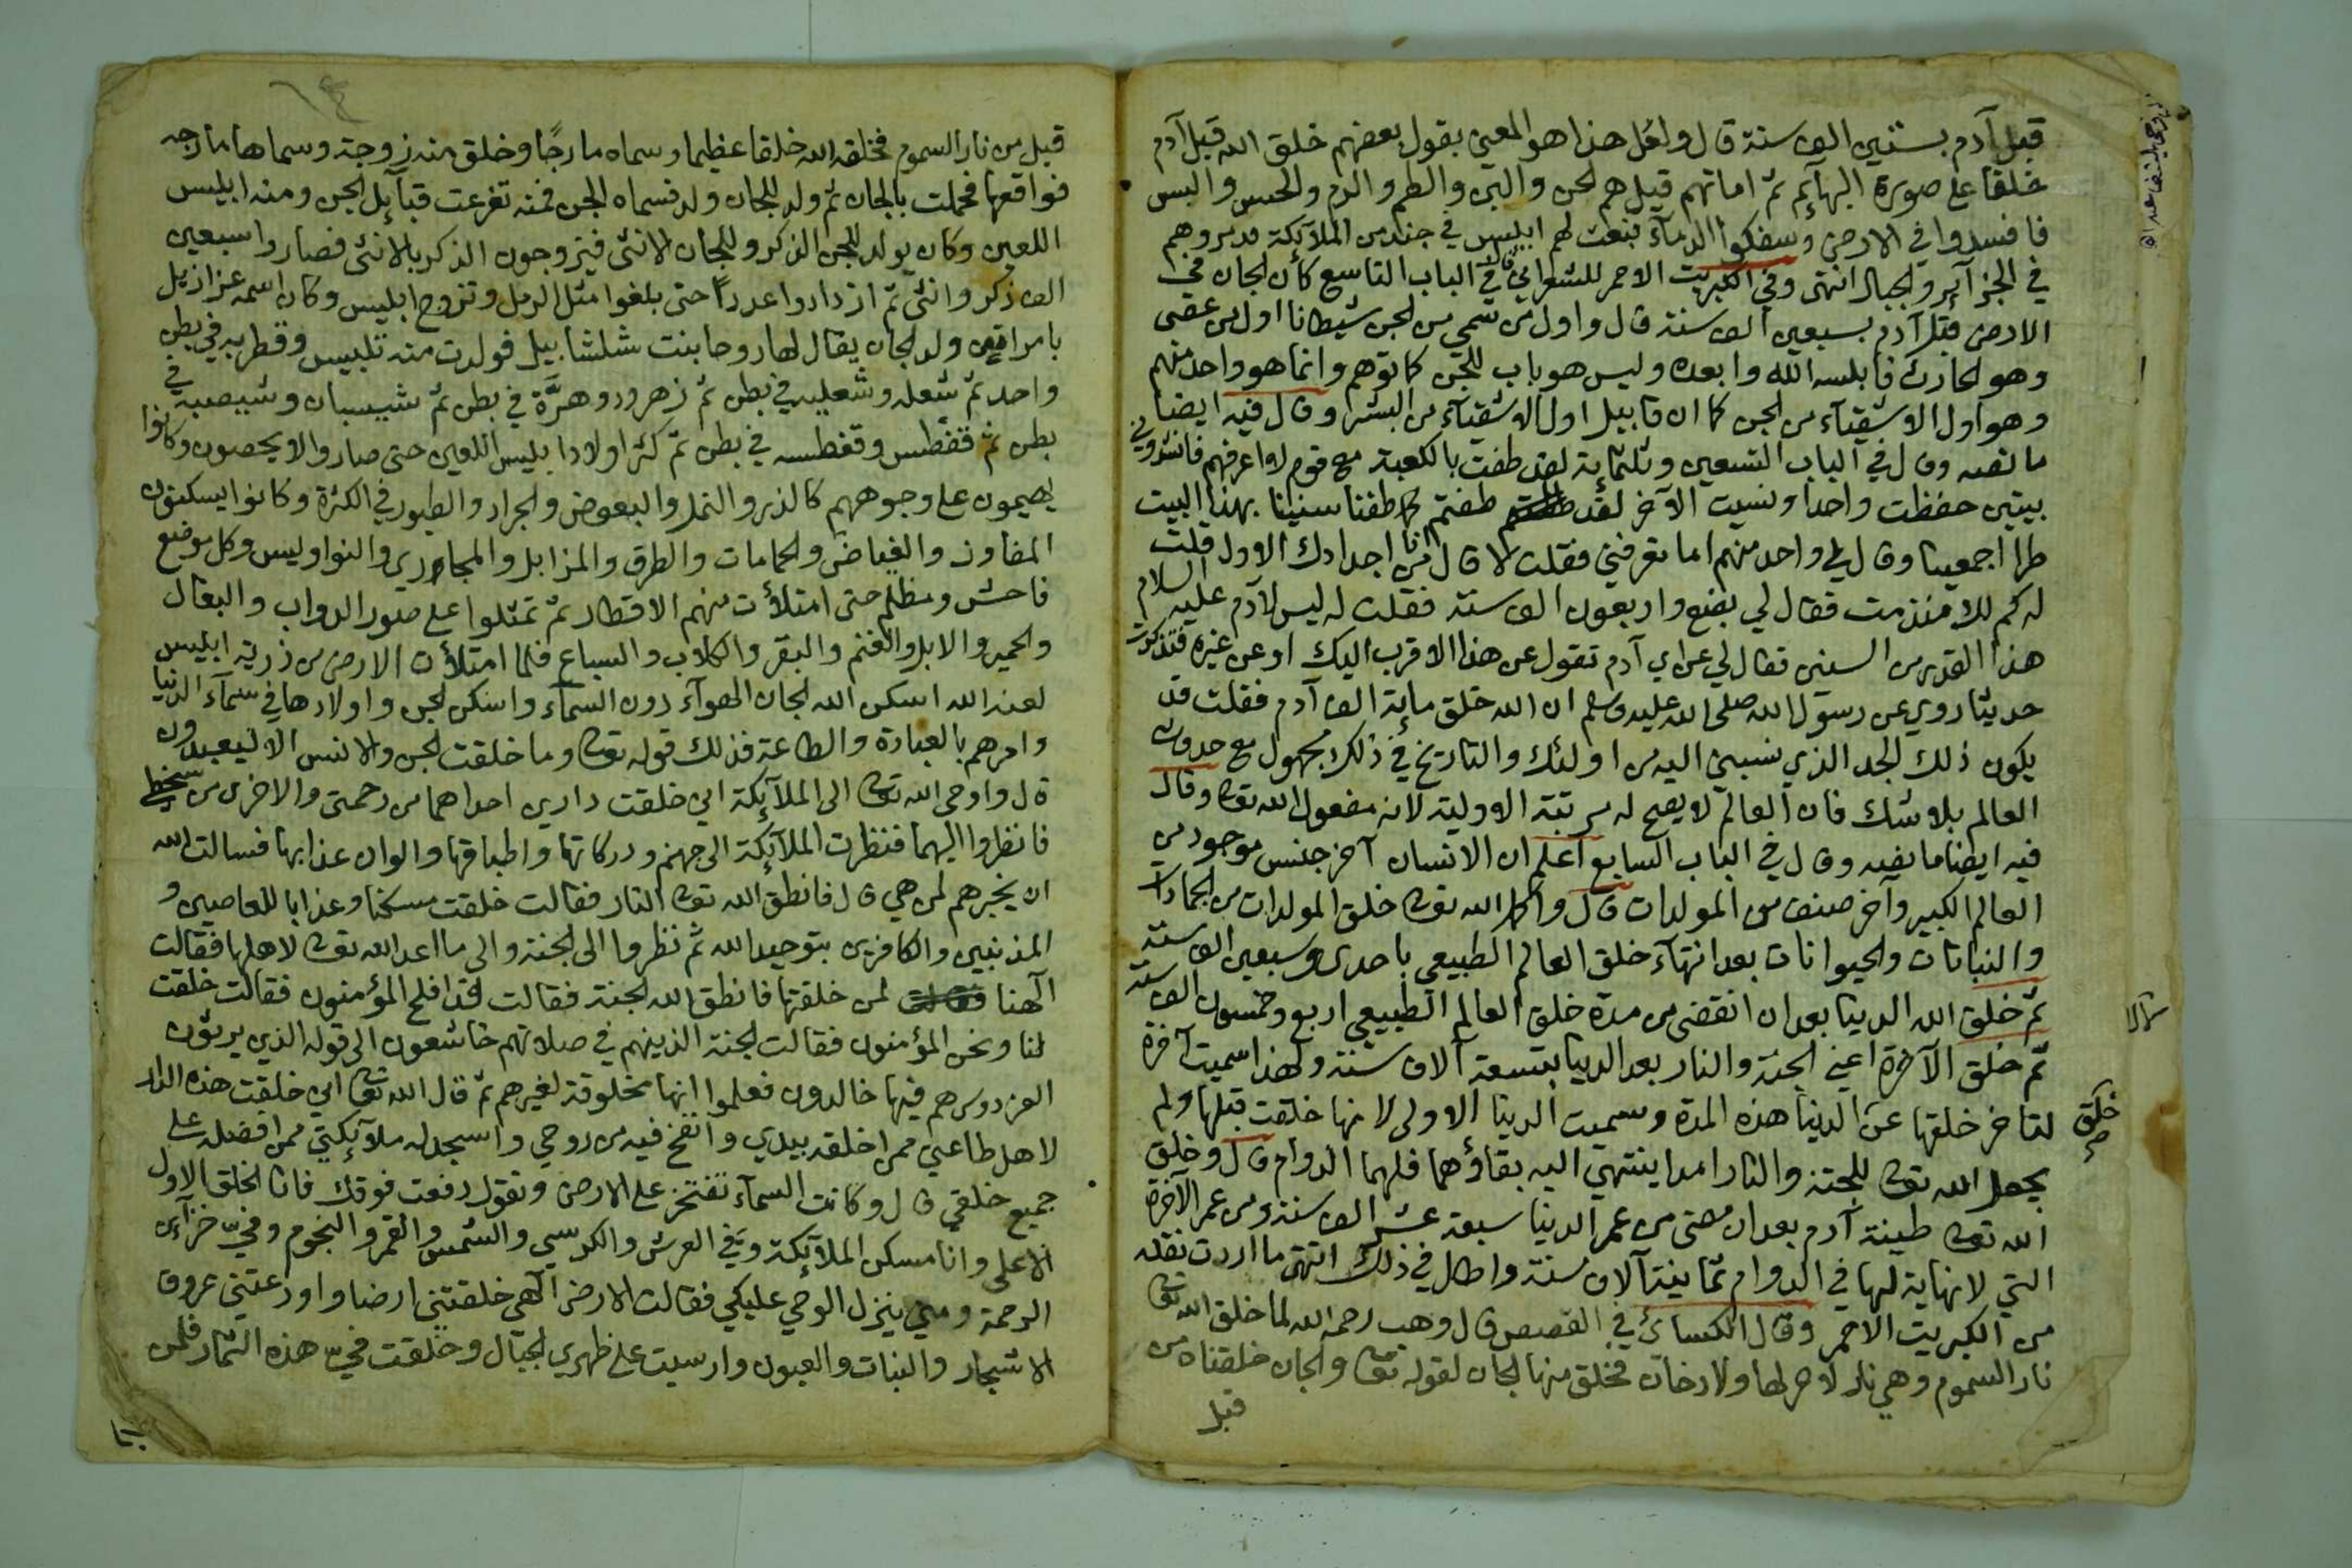 قبل آدم بستين الف سنة قال ولعل هذا هو المعني بقول بعضهم خلق الله قبل آدم
خلقا على صورة البهآئم ثم اماتهم قيل هم الحن والبن والطم والرم والحس والبس
فافسدوا في الارض وسفكوا الدمآء فبعث لهم ابليس في جند من الملآئكة فدمروهم
في الجزآئر والجبال انتهى وفي الكبريت الاحمر للشعراني قال في الباب التاسع كان الجان في
الارض قبل آدم بسبعين الف سنة قال واول من سمي من الجن شيطانا اول من عصى
وهو الحارث فابلسه الله وابعده وليس هو باب للجن كما توهم وانما هو واحد منهم
وهو اول الاشقيآء من الجن كما ان قابيل اول الاشقيآء من البشر وقال فيه ايضا
ما نصه وقال في الباب التسعين وثلثمائة لقد طفت بالكعبة مع قوم لا اعرفهم فانشدوني
بيتين حفظت واحدا ونسيت الآخر لقد طفتم كما طفنا سنينا بهذا البيت
طرا اجمعينا وقال لي واحد منهم اما تعرفني فقلت لا قال انا من اجدادك الاول قلت
له كم لك منذ مت فقال لي بضع واربعون الف سنة فقلت له ليس لآدم عليه السلام
هذا القدر من السنين فقال لي عن اي آدم تقول عن هذا الاقرب اليك او عن غيره فتذكرت
حديثا روي عن رسول الله صلى الله عليه وسلم ان الله خلق مائة الف آدم فقلت قد
يكون ذلك الجد الذي نسبني اليه من اولئك والتاريخ في ذلك مجهول مع حدوث
العالم بلا شك فان العالم لا يصح له مرتبة الاولية لانه مفعول الله تعالى وقال
فيه ايضا ما نصه وقال في الباب السابع اعلم ان الانسان آخر جنس موجود من
العالم الكبير وآخر صنف من المولدات قال واكمل الله تعالى خلق المولدات من الجمادات
والنباتات والحيوانات بعد انتهآء خلق العالم الطبيعي باحدى وسبعين الف سنة
ثم خلق الله الدنيا بعد ان انقضى من مدة خلق العالم الطبيعي اربع وخمسون الف سنة
ثم خلق الآخرة اعني الجنة والنار بعد الدنيا بتسعة آلاف سنة ولهذا سميت آخرة
لتاخر خلقها عن الدنيا هذه المدة وسميت الدنيا الاولى لانها خلقت قبلها ولم
خلق
صح
يجعل الله تعالى للجنة والنار امدا ينتهي اليه بقاؤهما فلهما الدوام قال وخلق
الله تعالى طينة آدم بعد ان مضى من عمر الدنيا سبعة عشر الف سنة ومن عمر الآخرة
التي لا نهاية لها في الدوام ثمانية آلاف سنة واطال في ذلك انتهى ما اردت نقله
من الكبريت الاحمر وقال الكسائي في القصص قال وهب رحمه الله لما خلق الله تعالى
نار السموم وهي نار لا حر لها ولا دخان فخلق منها الجان لقوله تعالى والجان خلقناه من
قبل
قبل من نار السموم فخلقه الله خلقا عظيما وسماه مارجا وخلق منه زوجة وسماها مارجه
فواقعها فحملت بالجان ثم ولد للجان ولد فسماه الجن فمنه تفرعت قبآئل الجن ومنه ابليس
اللعين وكان يولد للجن الذكر وللجان الانثى فيتزوجون الذكر بالانثى فصاروا سبعين
الف ذكر وانثى ثم ازدادوا عددا حتى بلغوا مثل الرمل وتزوج ابليس وكان اسمه عزازيل
بامراة من ولد الجان يقال لها روحا بنت شلشابيل فولدت منه تلبيس وقطربه في بطن
واحد ثم شعله وشعليه في بطن ثم زهرور وهرة في بطن ثم شيبسبان وشيصبه في
بطن ثم قفطس وقفطسه في بطن ثم كثر اولاد ابليس اللعين حتى صاروا لا يحصون وكانوا
يهيمون على وجوههم كالذر والنمل والبعوض والجراد والطيور في الكثرة وكانوا يسكنون
المفاوز والغياض والحمامات والطرق والمزابل والمجاري والنواويس وكل موضع
فاحش ومظلم حتى امتلأت منهم الاقطار ثم تمثلوا على صور الدواب والبغال
والحمير والابل والغنم والبقر والكلاب والسباع فلما امتلأت الارض من ذرية ابليس
لعنه الله اسكن الله الجان الهوآء دون السمآء واسكن الجن واولادها في سمآء الدنيا
وامرهم بالعبادة والطاعة فذلك قوله تعالى وما خلقت الجن والانس الا ليعبدون
قال واوحى الله تعالى الى الملآئكة اني خلقت دارين احداهما من رحمتي والاخرى من سخطي
فانظروا اليهما فنظرت الملآئكة الى جهنم ودركاتها واطباقها والوان عذابها فسالت الله
ان يخبرهم لمن هي قال فانطق الله تعالى النار فقالت خلقت مسكنا وعذابا للعاصين و
المذنبين والكافرين بتوحيد الله ثم نظروا الى الجنة والى ما اعد الله تعالى لاهلها فقالت
آلهنا لمن خلقتها فانطق الله الجنة فقالت لقد افلح المؤمنون فقالت خلقت
لنا ونحن المؤمنون فقالت الجنة الذينهم في صلاتهم خاشعون الى قوله الذي يرثون
الفردوس هم فيها خالدون فعلموا انها مخلوقة لغيرهم ثم قال الله تعالى اني خلقت هذه الدار
لاهل طاعتي ممن اخلقه بيدي وانفخ فيه من روحي واسجد له ملآئكتي ممن افضله على
جميع خلقي قال وكانت السمآء تفتخر على الارض وتقول رفعت فوقك فانا الخلق الاول
الاعلى وانا مسكن الملآئكة وفي العرش والكرسي والشمس والقمر والنجوم وفيّ خزآئن
الرحمة ومني ينزل الوحي عليكي فقالت الارض آلهي خلقتني ارضا واودعتني عروق
الاشجار والنبات والعيون وارسيت على ظهري الجبال وخلقت فيّ هذه الثمار فلمن